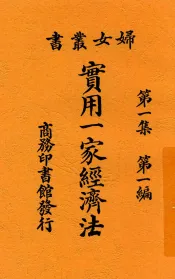 婦女叢書
第一集 第一編
實用一家經濟法
商務印書館發行